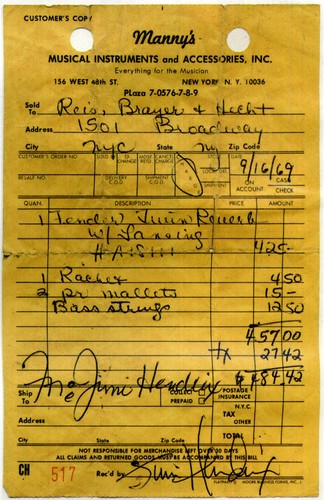 CUSTOMER'S COPY
Manny's
MUSICAL INSTRUMENTS and ACCESSORIES, INC.
Everything for the Musician
156 WEST 48th ST. NEW YORK, N. Y. 10036
Plaza 7-0576-7-8-9
Sold To Reis, Brayer & Hecht
Address 1501 Broadway
City NYC State NY Zip Code
CUSTOMER'S ORDER NO SOLD EXCHANGED MOSE. RETD. CHARGE DATE 9/16/69
RESALE NO. DELIVERY C.O.D. SHIPMENT C.O.D. ON ACCOUNT CASH CHECK
QUAN. DESCRIPTION PRICE AMOUNT
1 Fender Twin Reverb
w/ Lansing
#A15111 425-
1 Rachet 4 50
2 pr mallets 15-
Bass strings 12 50
457 00
tx 27 42
$484.42
Me Jimi Hendrix
Ship To COLLECT PREPAID POSTAGE INSURANCE
N.Y.C. TAX
Address OTHER
City State Zip Code TOTAL
NOT RESPONSIBLE FOR MERCHANDISE LEFT OVER 30 DAYS
ALL CLAIMS AND RETURNED GOODS MUST BE ACCOMPANIED BY THIS BILL
CH 517 Rec'd by
MOORE BUSINESS FORMS, INC.